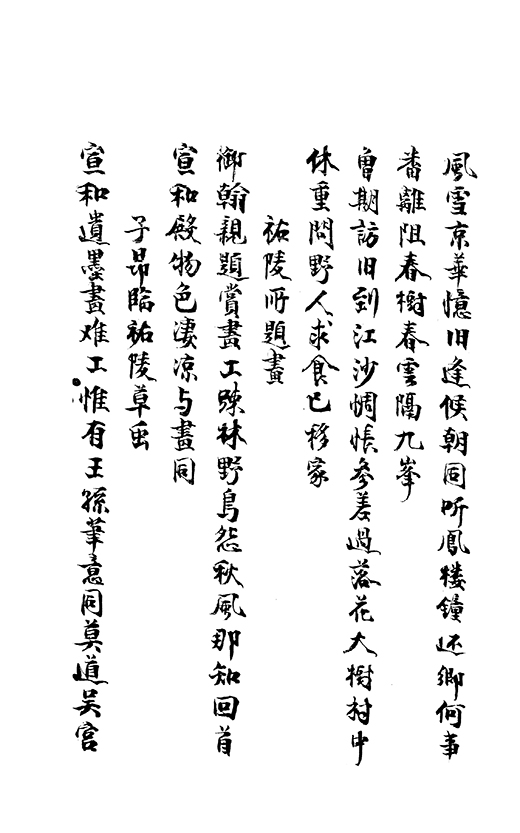 風雪京華憶旧逢候朝同听鳳楼鐘还鄉何事
番離阻春樹春雲隔九峯
曽期訪旧到江沙惆悵參差過落花大樹村中
休重問野人求食已移家
祐陵所題畫
御翰親題賞畫工疎林野鳥怨秋風那知回首
宣和殿物色凄凉与畫同
子昂臨祐陵草虫
宣和遺墨畫难工惟有王孫筆意同莫道吴宫